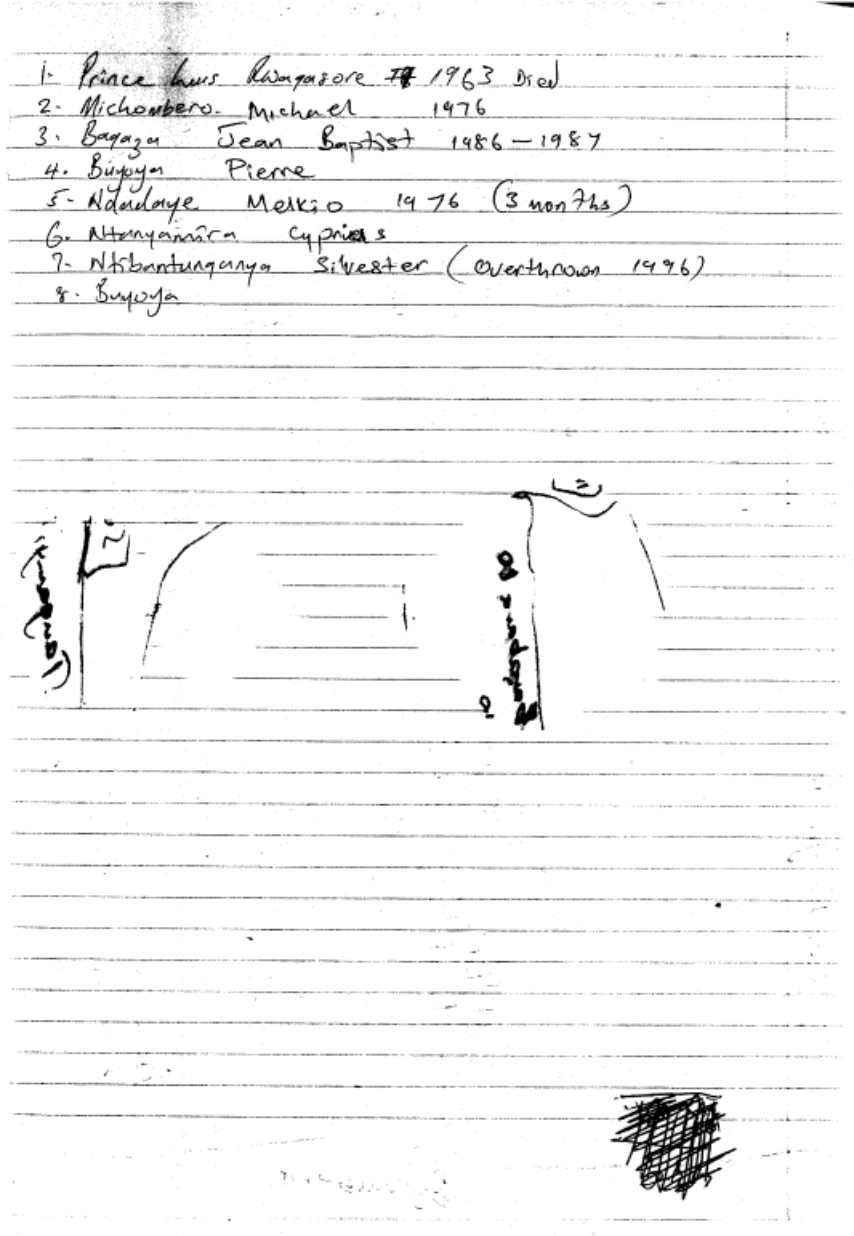 1- Prince Luis Rwagasore 1963 Died
2- Michombero. Michael 1976
3. Bagaza Jean Baptist 1986 – 1987
4. Buyoya Pierre
5- Ndadaye Melkio 1976 (3 months)
6. Ntanyamira Cyprias
7- Ntibantunganya Silvester (Overthrown 1996)
8. Buyoya